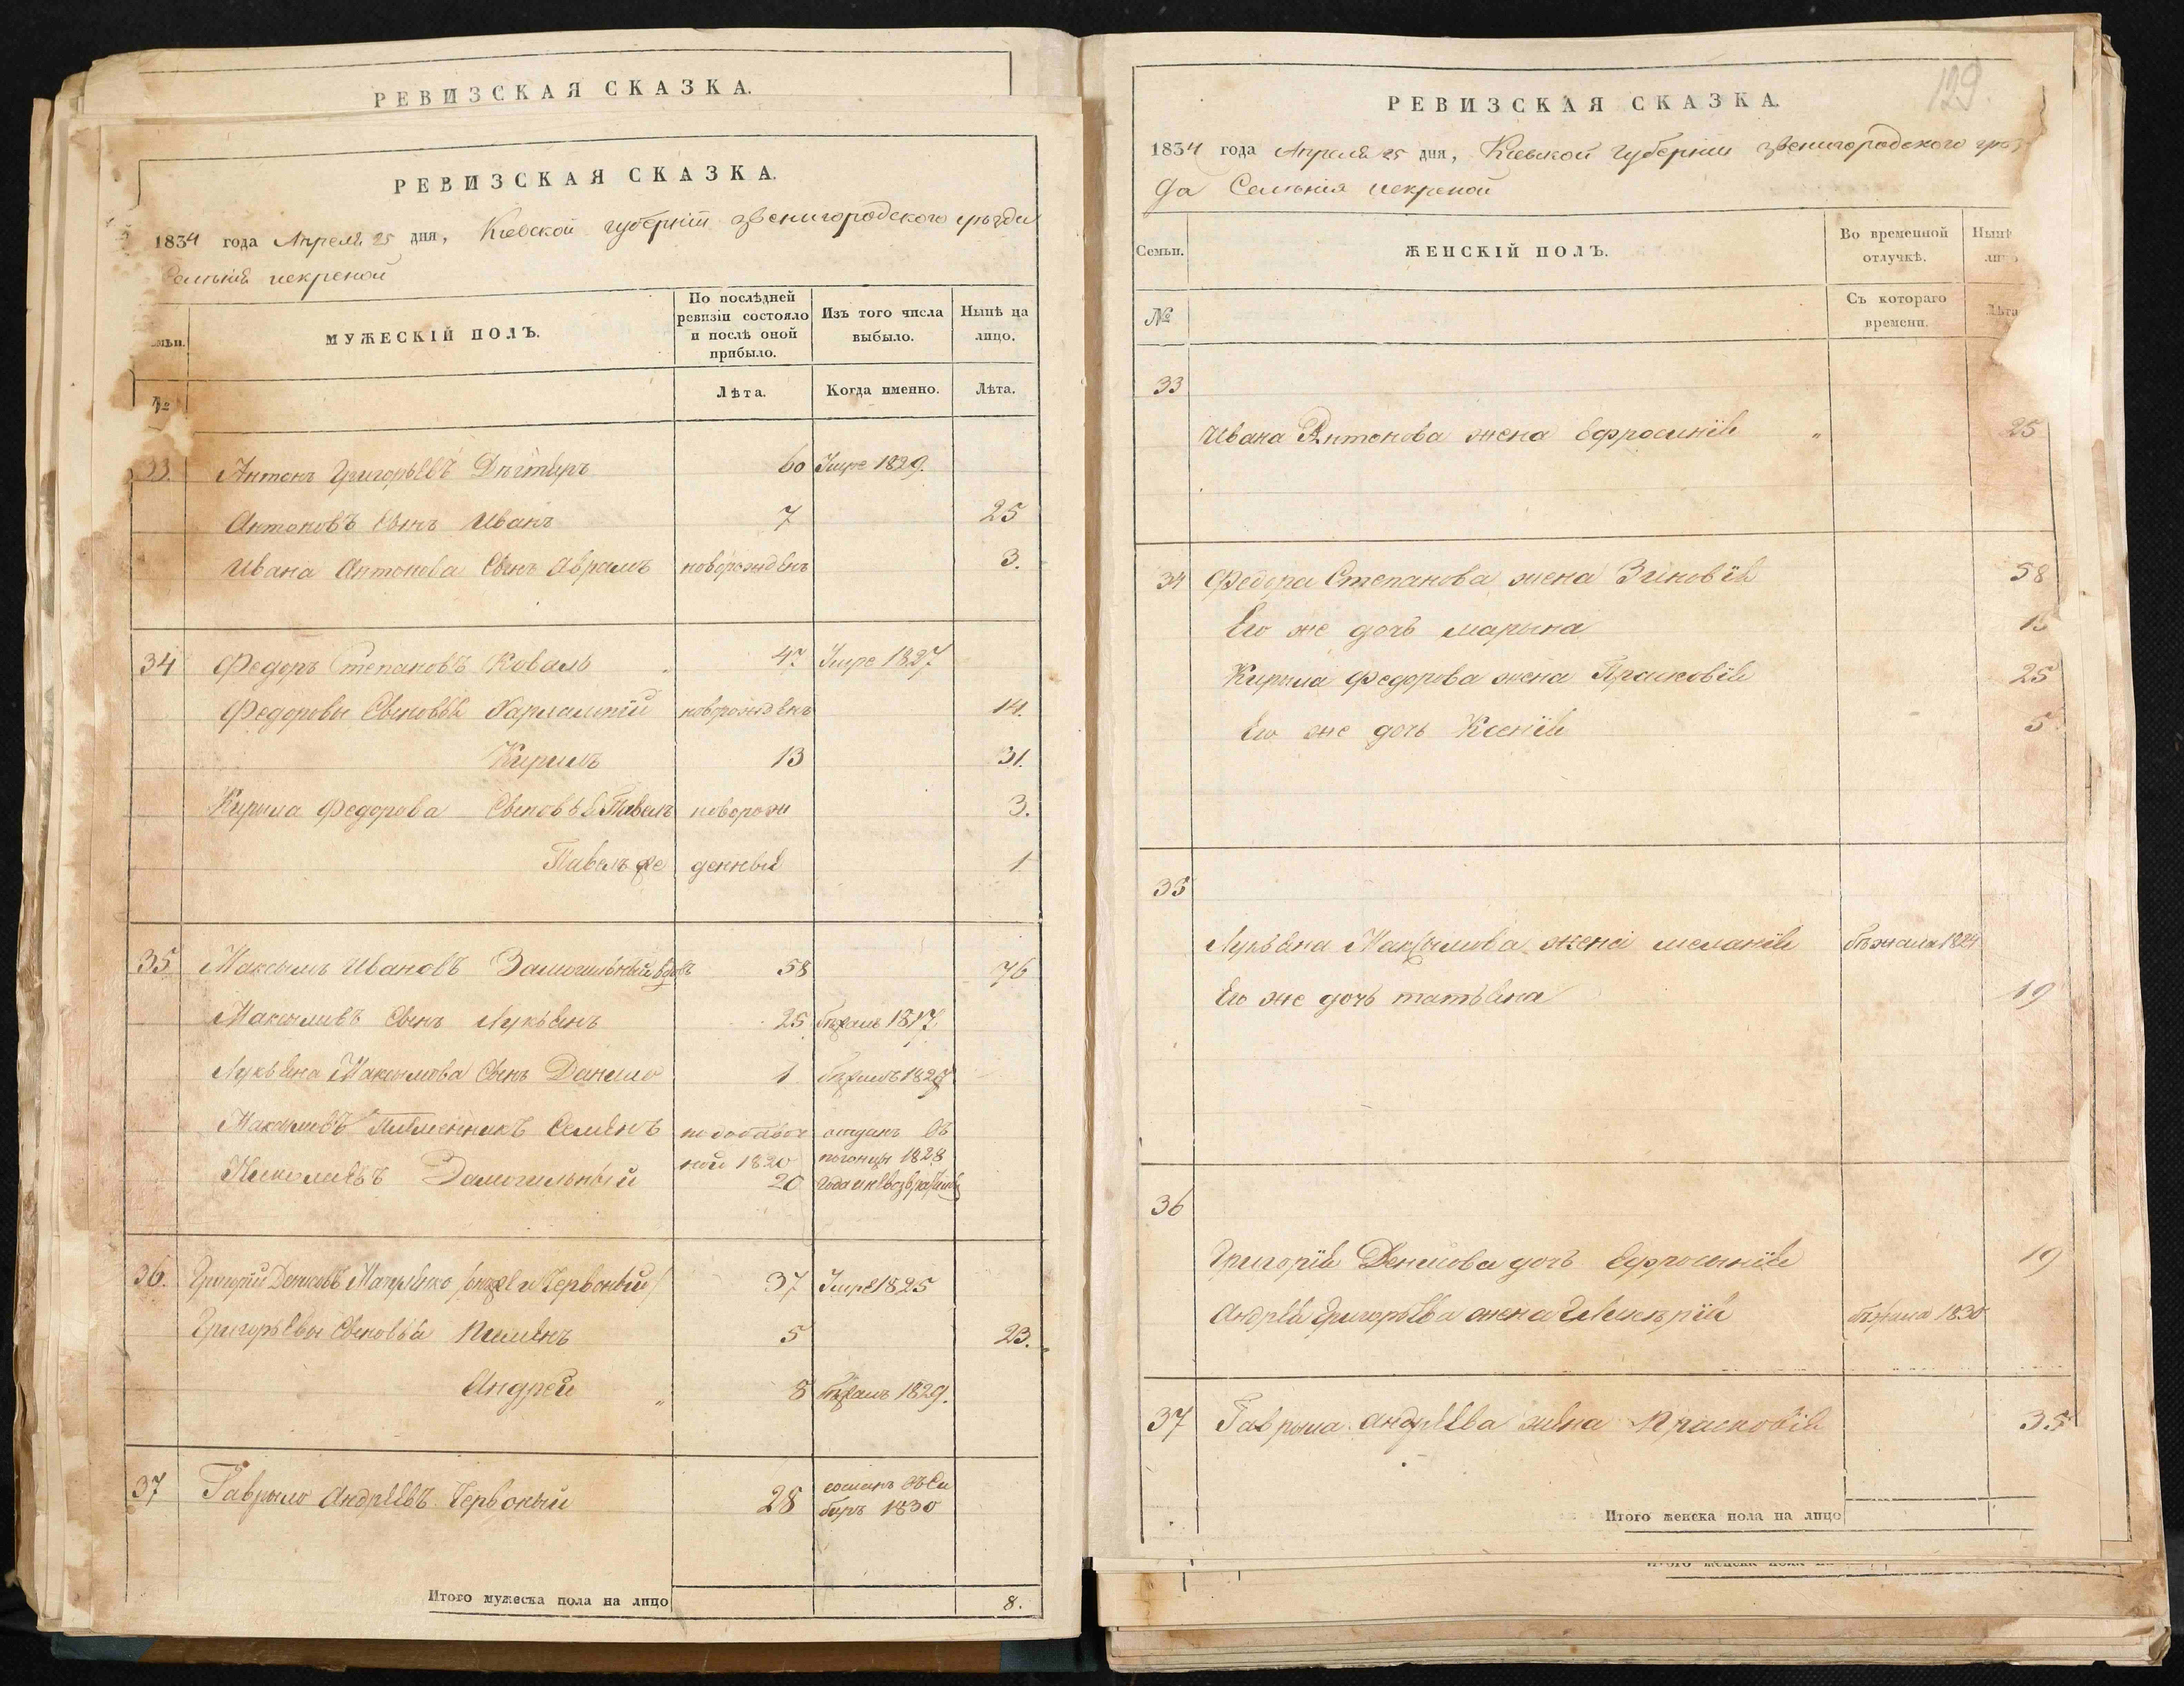 РЕВИЗСКАЯ СКАЗКА.
РЕВИЗСКАЯ СКАЗКА.
1834 года Апреля 25 дня, Кіевской губерніи звенигородского уѣзда
Селенія искреной
МУЖЕСКІЙ ПОЛЪ.
По послѣдней ревизіи состояло и послѣ оной прибыло.
Изъ того числа выбыло.
Нынѣ на лицо.
№
Лѣта.
Когда именно.
Лѣта.
33. Антонъ Григорьевъ 60 Умре 1829.
Антоновъ Сынъ Иванъ 7 25
Ивана Антонова Сынъ Аврамъ новорожденъ 3.
34 Федоръ Степановъ Коваль 47 Умре 1827
Федоровы Сыновья Харлампій новорожденъ 14.
Кирилъ 13 31.
Кирыла Федорова Сыновья Павелъ новорож 3.
Павелъ же денный 1
35 Максымъ Ивановъ Замогильный вдовъ 58 76
Максымивъ Сынъ Лукьянъ 25 бѣжалъ 1817
Лукьяна Максымова Сынъ Данило 1 бѣжалъ 1827
Максымивъ Племенникъ Семенъ подобавоч отданъ въ
ной 1820 погонцы 1828
Замогильный 20 года и не возвратился
36. Григорій Денисовъ онже и Червоный 37 Умре 1825
Григорьевы Сыновья Пименъ 5 23.
Андрей " 8 бѣжалъ 1829.
37 Гаврыло Андреевъ Червоный 28 сосланъ въ Си
биръ 1830
Итого мужеска пола на лицо 8.
129.
РЕВИЗСКАЯ СКАЗКА.
1834 года Апреля 25 дня, Кіевской губерніи звенигородского уѣз
да Селенія искреной
Семьи.
ЖЕНСКІЙ ПОЛЪ.
Во временной отлучкѣ.
Нынѣ
№
Съ котораго времени.
Лѣта
33
Ивана Антонова жена Ефросинія " 25
34 Федора Степанова жена Зиновія 58
Его же дочь марына
Кирыла Федорова жена Прасковія 25
Его же дочь Ксенія 5
35
Лукьяна Максымова жена меланія бѣжала 1824
Его же дочь татьяна 19
36
Григорія Денисова дочь Ефросинія 19
Андрея Григорьева жена бѣжала 1830
37 Гаврыла Андреева жена Прасковія 35
Итого женска пола на лицо